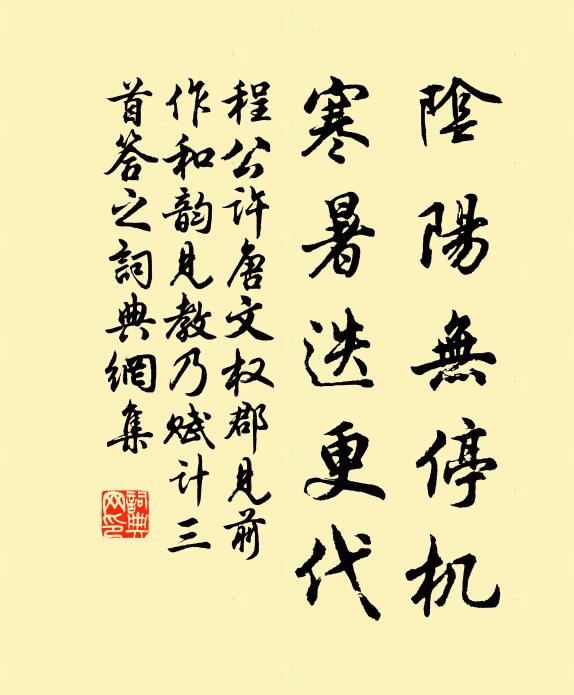 陰陽無停机
寒暑迭更代
程公许唐文权郡見前
作和韵見教乃赋计三
首答之詞典網集
詞典
网印